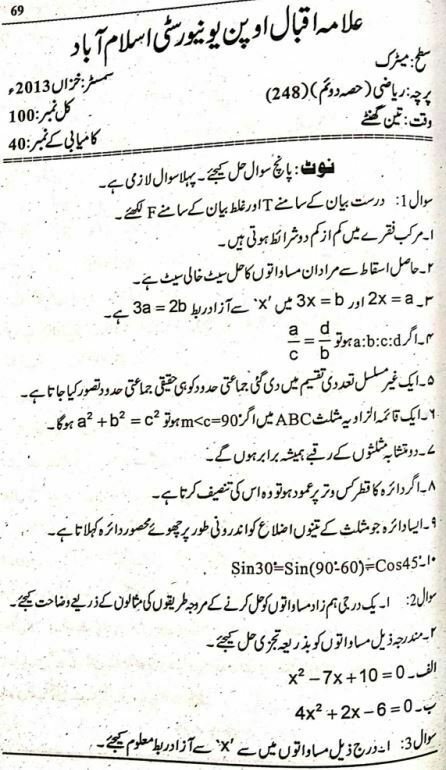 69
علامہ اقبال اوپن یونیورسٹی اسلام آباد
سطح: میٹرک
سمسٹر: خزاں 2013ء
پرچہ: ریاضی (حصہ دوئم) (248)
کل نمبر: 100
وقت: تین گھنٹے
کامیابی کے نمبر: 40
نوٹ: پانچ سوال حل کیجئے۔ پہلا سوال لازمی ہے۔
سوال 1: درست بیان کے سامنے T اور غلط بیان کے سامنے F لکھئے۔
۱۔ مرکب فقرے میں کم از کم دو شرائط ہوتی ہیں۔
۲۔ حاصل اسقاط سے مراد ان مساواتوں کا حل سیٹ خالی سیٹ ہے۔
۳۔ 2x = a اور 3x = b میں 'x' سے آزاد ربط 3a = 2b ہے۔
۴۔ اگر a:b:c:d ہو تو a/c = d/b
۵۔ ایک غیر مسلسل تعددی تقسیم میں دی گئی جماعتی حدود کو ہی حقیقی جماعتی حدود تصور کیا جاتا ہے۔
۶۔ ایک قائمۃ الزاویہ مثلث ABC میں اگر m<c=90° ہو تو a² + b² = c² ہوگا۔
۷۔ دو متشابہ مثلثوں کے رقبے ہمیشہ برابر ہوں گے۔
۸۔ اگر دائرہ کا قطر کس وتر پر عمود ہو تو وہ اس کی تنصیف کرتا ہے۔
۹۔ ایسا دائرہ جو مثلث کے تینوں اضلاع کو اندرونی طور پر چھوئے محصور دائرہ کہلاتا ہے۔
۱۰۔ Sin30°=Sin(90°-60°)=Cos45°
سوال 2: ۱۔ یک درجی ہم زاد مساواتوں کو حل کرنے کے مروجہ طریقوں کی مثالوں کے ذریعے وضاحت کیجئے۔
۲۔ مندرجہ ذیل مساواتوں کو بذریعہ تجزی حل کیجئے۔
الف۔ x² − 7x + 10 = 0
ب۔ 4x² + 2x − 6 = 0
سوال 3: ۱۔ درج ذیل مساواتوں میں سے 'x' سے آزاد ربط معلوم کیجئے۔